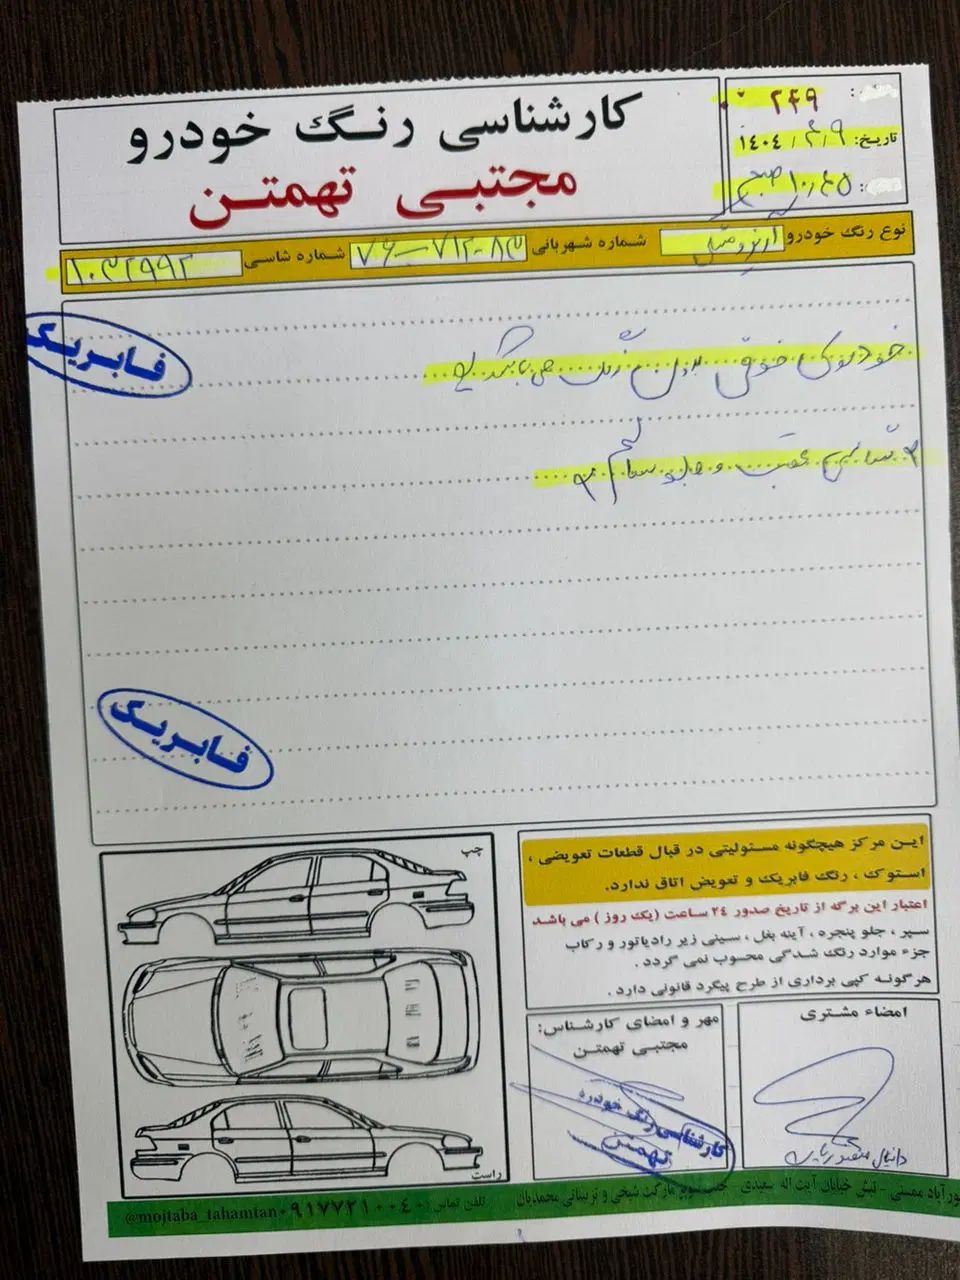 کارشناسی رنگ خودرو
مجتبی تهمتن
۲۴۹
تاریخ: ۱۴۰۴/۴/۹
۱۰:۴۵ صبح
نوع رنگ خودرو
شماره شهربانی ۷۱۲-۸۳
شماره شاسی ۱۰۳۲۹۹۲
فابریک
خودروی فوق بدون رنگ می باشد
عقب و جلو سالم
فابریک
چپ
راست
این مرکز هیچگونه مسئولیتی در قبال قطعات تعویضی ،
استوک ، رنگ فابریک و تعویض اتاق ندارد.
اعتبار این برگه از تاریخ صدور ۲۴ ساعت (یک روز ) می باشد
سپر ، جلو پنجره ، آینه بغل ، سینی زیر رادیاتور و رکاب
جزء موارد رنگ شدگی محسوب نمی گردد .
هرگونه کپی برداری از طرح پیگرد قانونی دارد .
امضاء مشتری
دانیال
مهر و امضای کارشناس:
مجتبی تهمتن
کارشناسی رنگ خودرو
تهمتن
نورآباد ممسنی - نبش خیابان آیت اله سعیدی -
تلفن تماس: ۰۹۱۷۷۲۱۰۰۴۰
@mojtaba_tahamtan